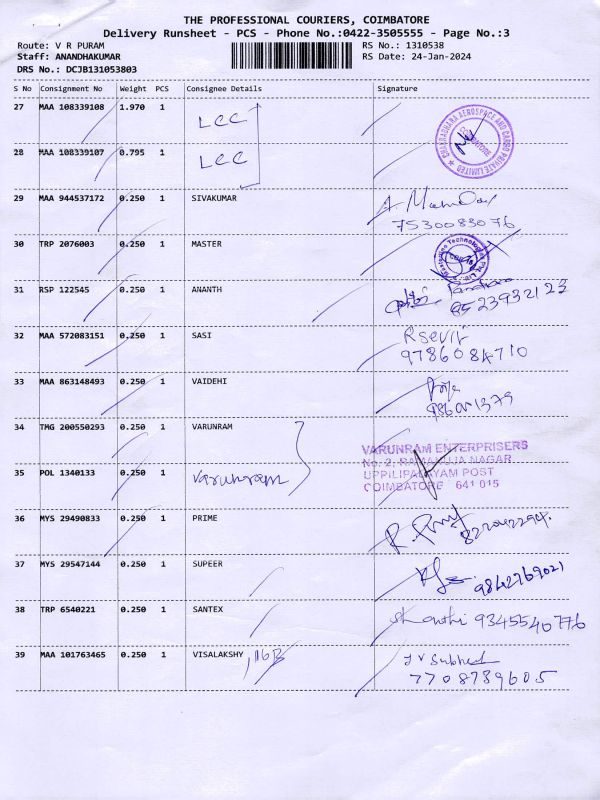 THE PROFESSIONAL COURIERS, COIMBATORE
Delivery Runsheet - PCS - Phone No.:0422-3505555 - Page No.:3
Route: V R PURAM
RS No.: 1310538
Staff: ANANDHAKUMAR
RS Date: 24-Jan-2024
DRS No.: DCJB131053803
S No Consignment No Weight PCS Consignee Details Signature
27 MAA 108339108 1.970 1 LCC
CHAKRADHARA AEROSPACE AND CARGO PRIVATE LIMITED
28 MAA 108339107 0.795 1 LCC
29 MAA 944537172 0.250 1 SIVAKUMAR
7530083076
30 TRP 2076003 0.250 1 MASTER
31 RSP 122545 0.250 1 ANANTH
8523932123
32 MAA 572083151 0.250 1 SASI
9786084710
33 MAA 863148493 0.250 1 VAIDEHI
34 TMG 200550293 0.250 1 VARUNRAM
VARUNRAM ENTERPRISERS
No. 2, RAMANUJA NAGAR
35 POL 1340133 0.250 1 Varunram
UPPILIPALAYAM POST
COIMBATORE 641 015
36 MYS 29490833 0.250 1 PRIME
37 MYS 29547144 0.250 1 SUPEER
9842769021
38 TRP 6540221 0.250 1 SANTEX
Shanthi 9345540776
39 MAA 101763465 0.250 1 VISALAKSHY
7708789605